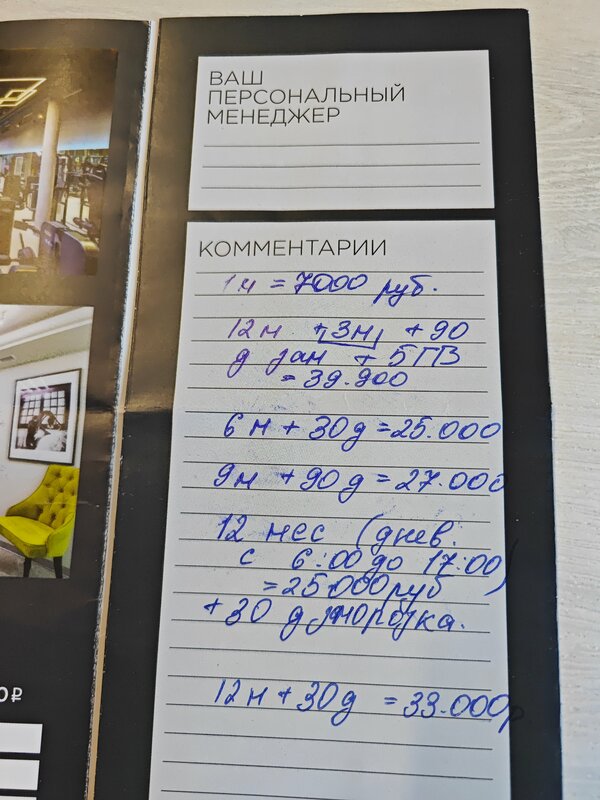 ВАШ
ПЕРСОНАЛЬНЫЙ
МЕНЕДЖЕР
КОММЕНТАРИИ
1м = 7000 руб.
12м +3м + 90
д зам + 5 ГВ
= 39.900
6 м + 30 д = 25.000
9м + 90 д = 27.000
12 мес (днев.
с 6:00 до 17:00)
= 25.000 руб
+ 30 д заморозка.
12 м + 30 д = 33.000р
0₽